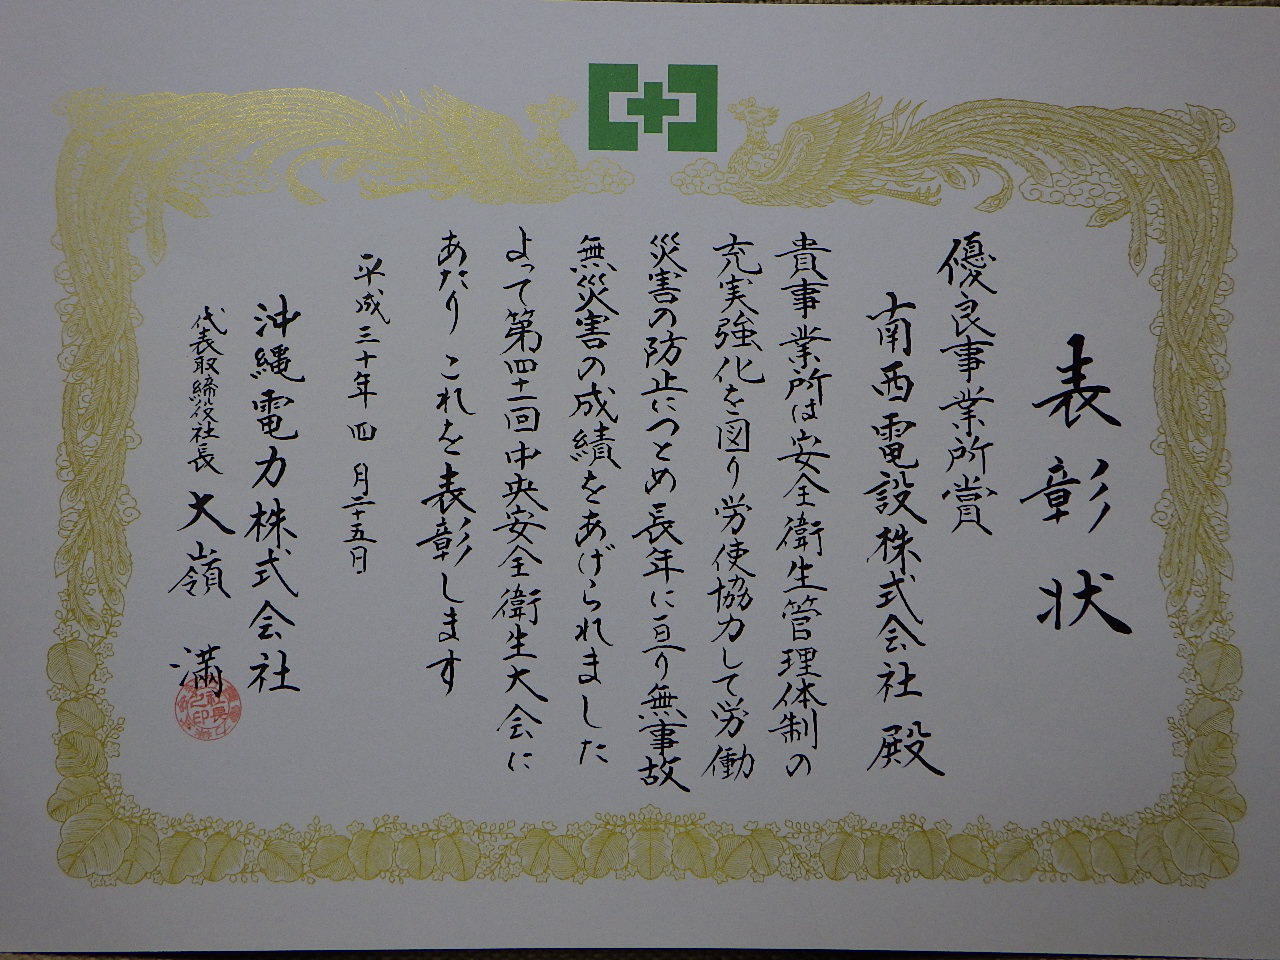 表彰状
優良事業所賞
南西電設株式会社 殿
貴事業所は安全衛生管理体制の
充実強化を図り労使協力して労働
災害の防止につとめ長年に亘り無事故
無災害の成績をあげられました
よって第四十一回中央安全衛生大会に
あたり これを表彰します
平成三十年 四 月二十五日
沖縄電力株式会社
代表取締役社長 大嶺 満